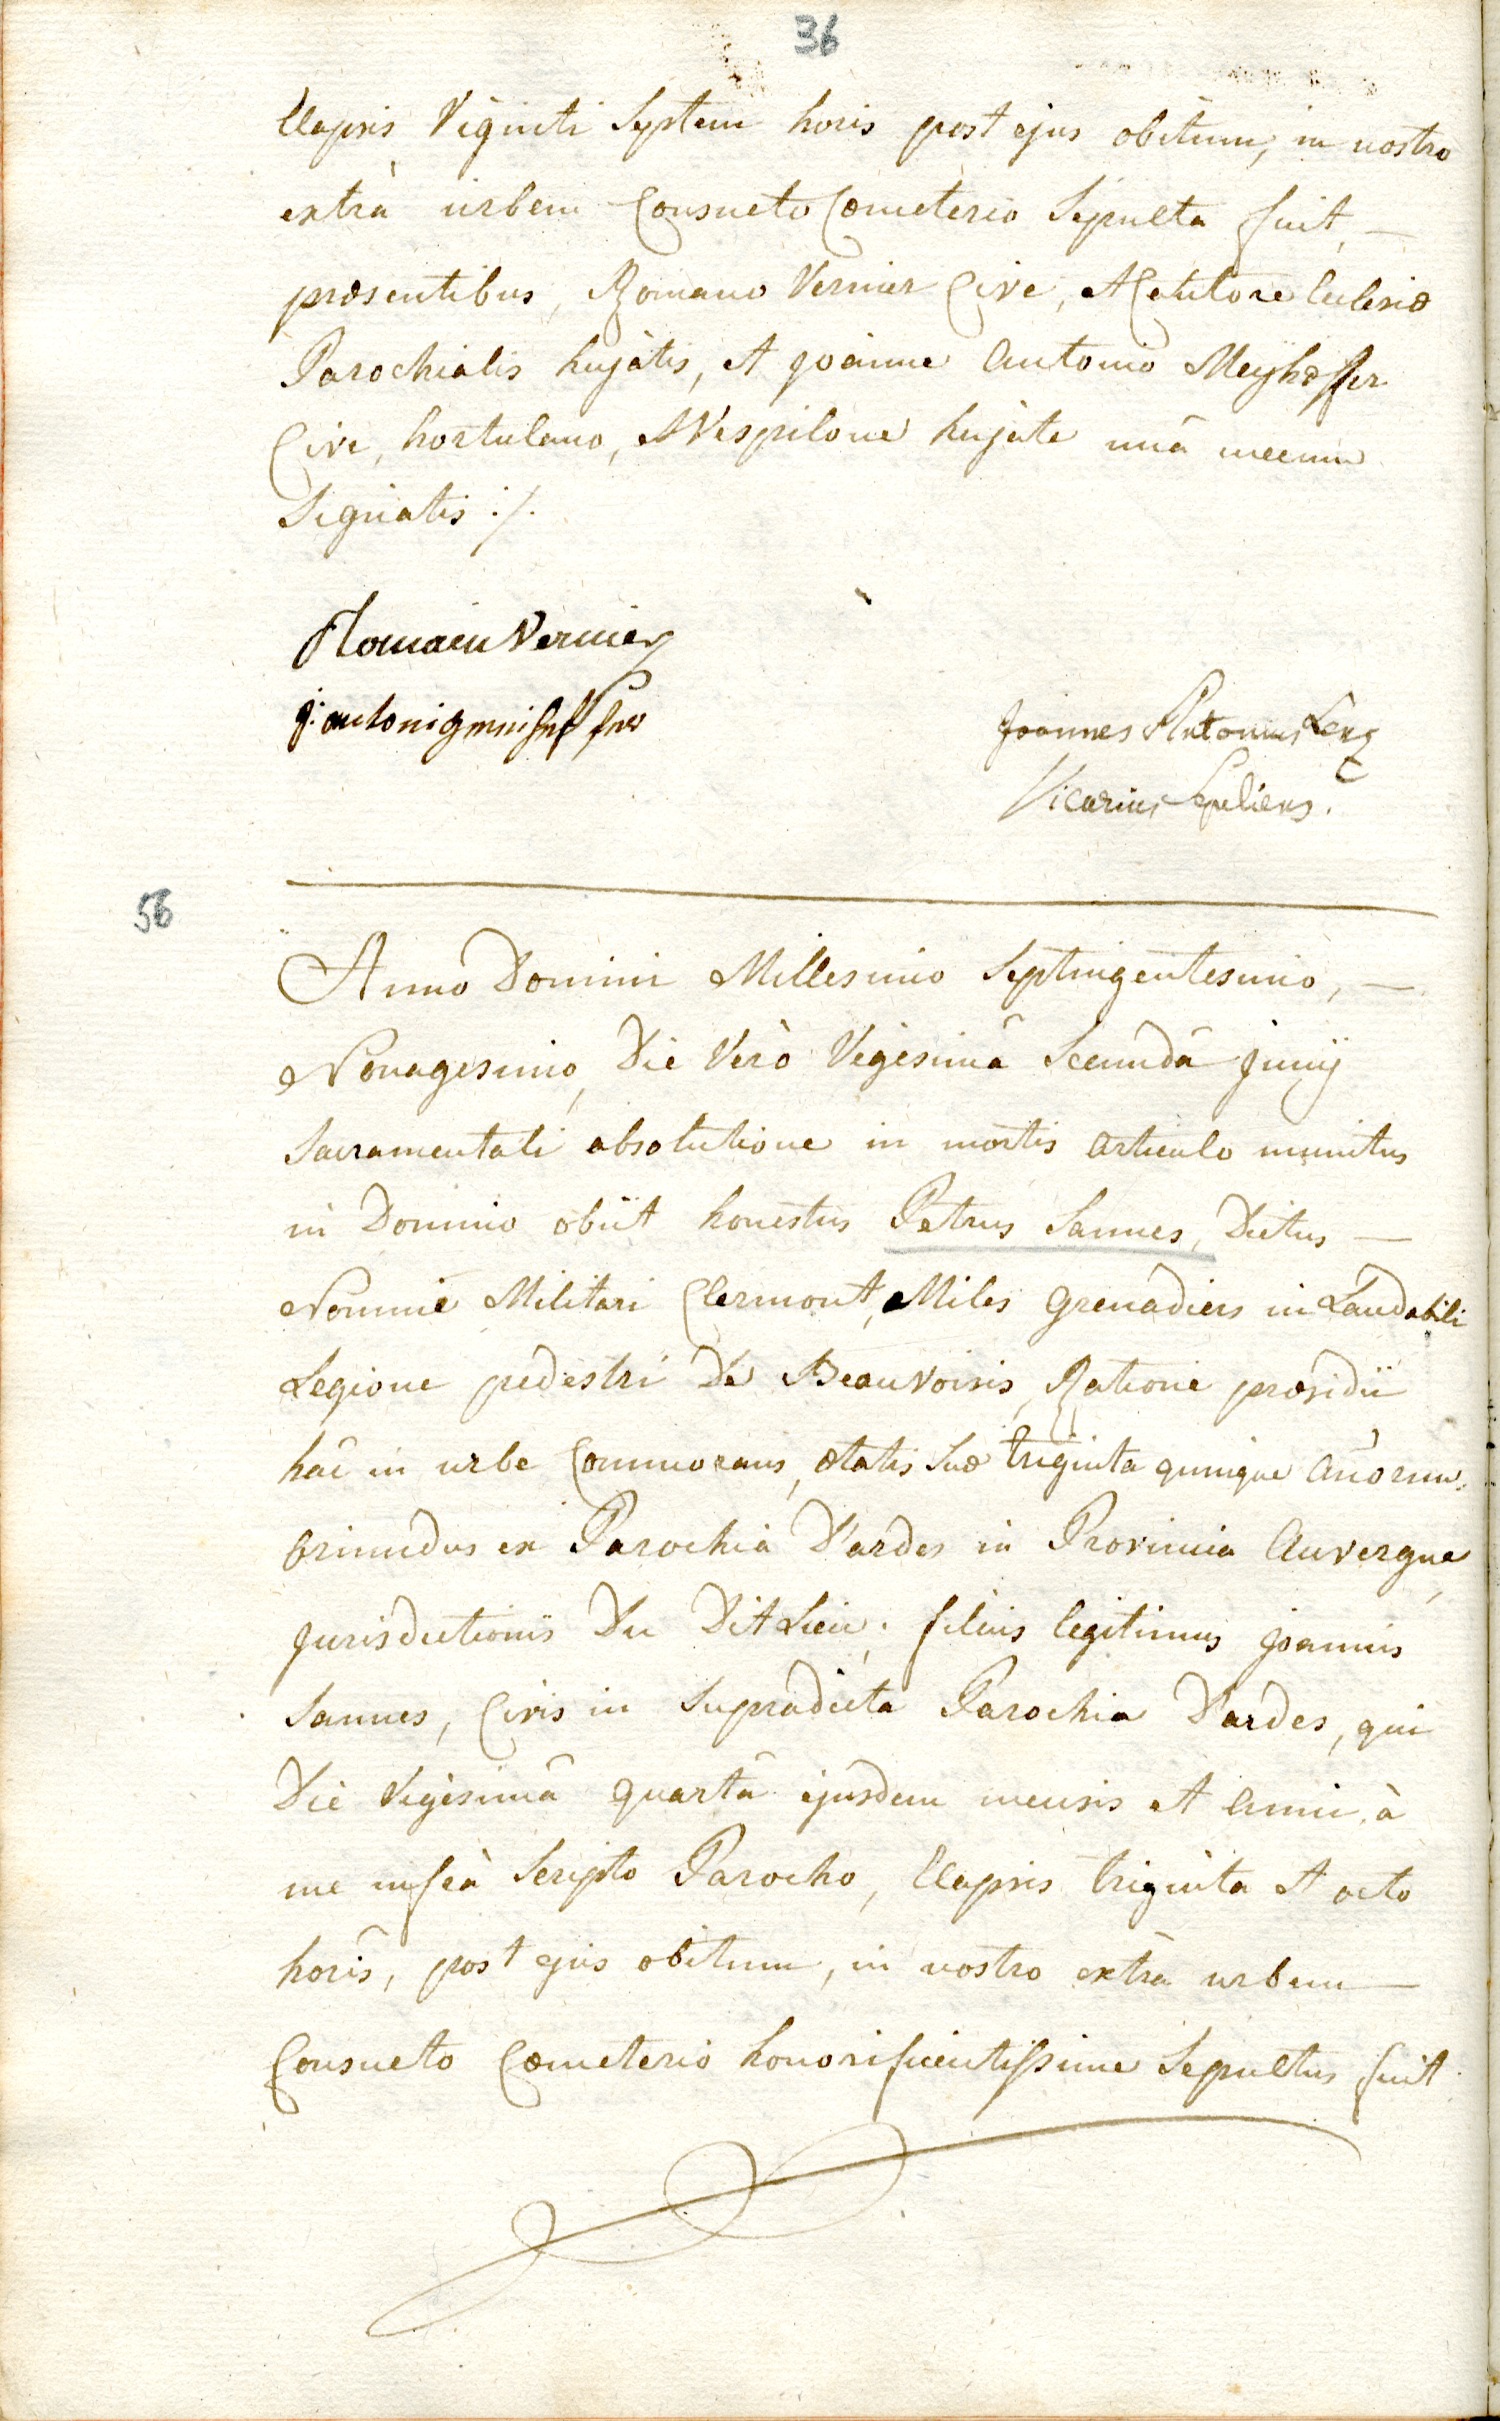 36
Elapsis Viginti Septem horis post ejus obitum, in nostro
extrà urbem Consueto Cœmeterio Sepulta fuit, —
præsentibus, Romano Vernier Cive, Et Cetutore Ecclesiæ
Parochialis hujatis, et Joanne Antonio Meyhoffer
Cive, hortulano, et Vespilone hujate unâ mecum
Signatis ./.
Romain Vernier
j: antoni
Joannes Antonius Lenz
Vicarius Sepeliens.
56
Anno Domini Millesimo Septingentesimo, —
Nonagesimo, Die Verò Vigesimâ Secundâ Junij
Sacramentali absolutione in mortis articulo munitus
in Domino obiit honestus Petrus Sannes, Dictus —
Nomine Militari Clermont, Miles Grenadiers in Laudabili
Legione pedestri De Beauvoisis, Ratione præsidii
hâc in urbe Commorans, ætatis suæ triginta quinque añorum,
oriundus ex Parochia D'ardes in Provincia Auvergne,
Jurisdictionis Du Dit Lieu; filius legitimus Joannis
Sannes, Civis in supradicta Parochia D'ardes, qui
Die Vigesimâ quartâ ejusdem mensis et anni, à
me infrà Scripto Parocho, Elapsis triginta et octo
horis, post ejus obitum, in nostro extra urbem —
Consueto Cœmeterio honorificentissime Sepultus fuit